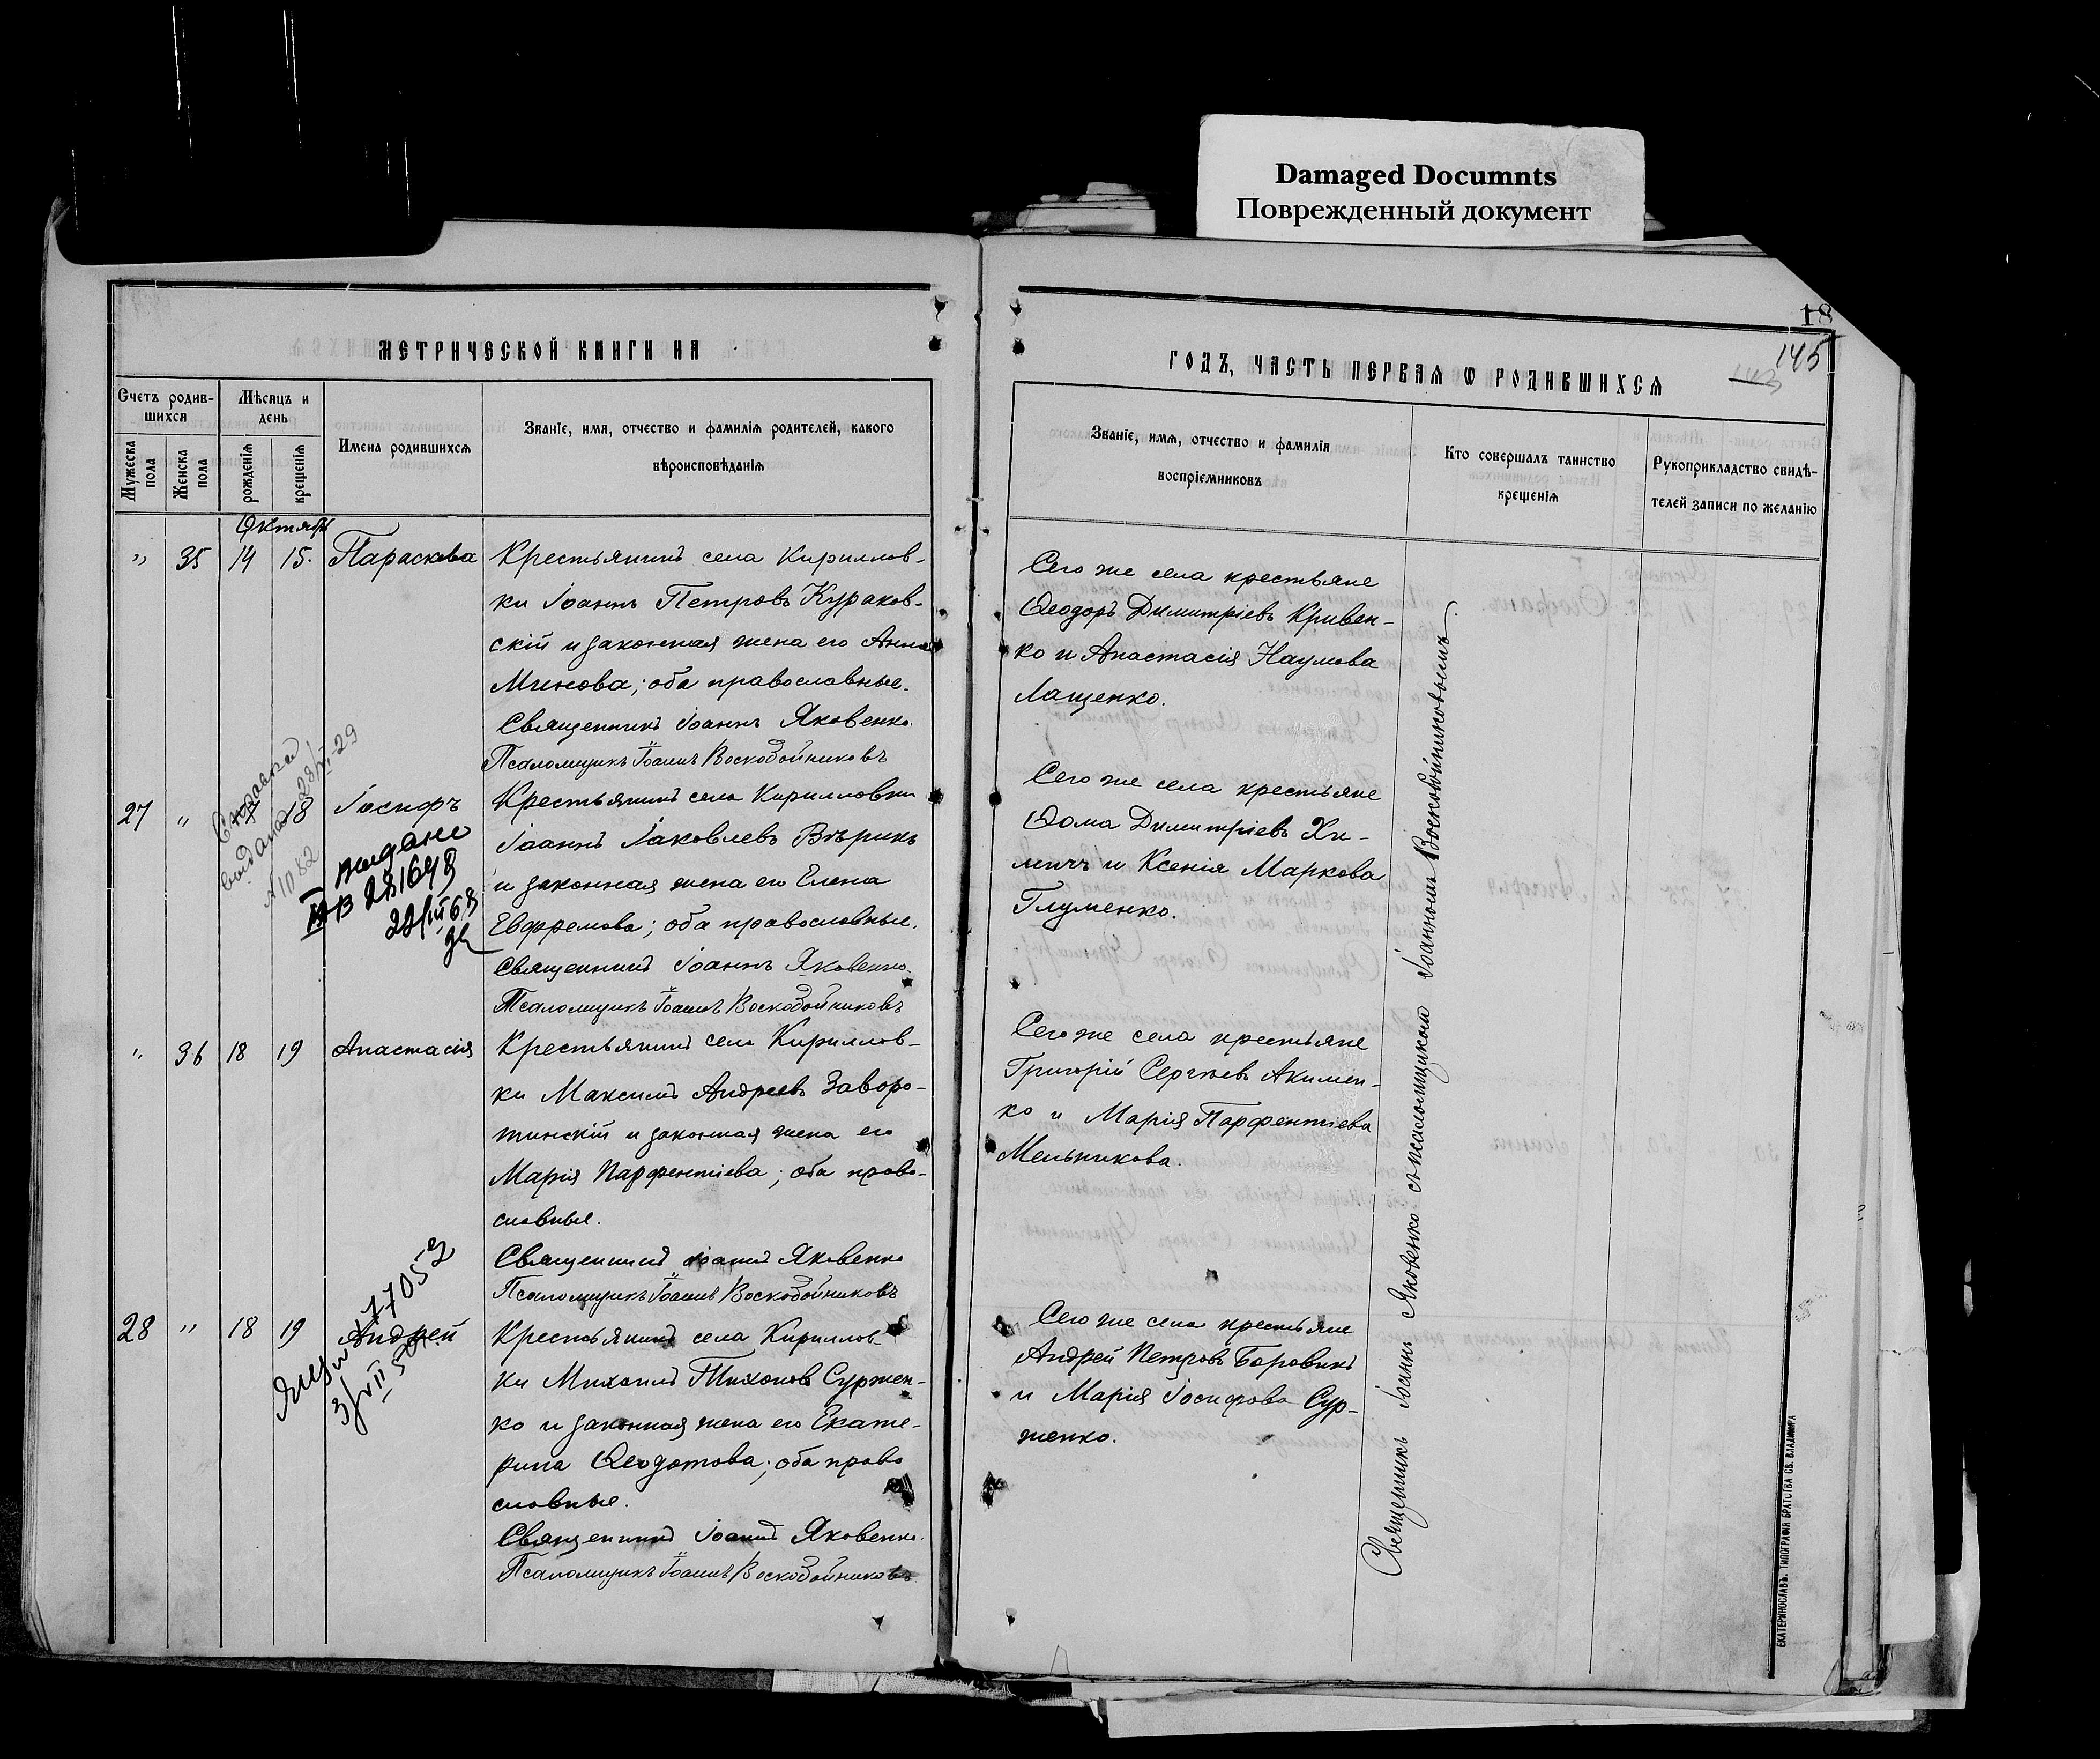 Damaged Documnts
Поврежденный документ
18
145
МЕТРИЧЕСКОЙ КНИГИ НА
Счетъ родив-
шихся
Мѣсяцъ и
день
Имена родившихся
Званіе, имя, отчество и фамилія родителей, какого
вѣроисповѣданія
Мужеска пола
Женска пола
рожденія
крещенія
Октябрь
" 35 14 15. Параскева
Крестьянинъ села Кириллов-
ки Іоаннъ Петровъ Кураков-
скій и законная жена его Анна
Минова; оба православные.
Священникъ Іоаннъ Яковенко.
Псаломщикъ Іоаннъ Воскобойниковъ
27 " 18 Іосифъ
Справка
выдана 28/VI-29
№1082
Выдано
28/III 68
Крестьянинъ села Кирилловки
Іоаннъ Іаковлевъ Вѣрикъ
и законная жена его Елена
Евфремова; оба православные.
Священникъ Іоаннъ Яковенко.
Псаломщикъ Іоаннъ Воскобойниковъ
" 36 18 19 Анастасія
Крестьянинъ села Кириллов-
ки Максимъ Андреевъ Заворо-
тинскій и законная жена его
Марія Парфентіева; оба право-
славные.
Священникъ Іоаннъ Яковенко
Псаломщикъ Іоаннъ Воскобойниковъ
28 " 18 19 Андрей
177052
Крестьянинъ села Кириллов-
ки Михаилъ Тихоновъ Суржен-
ко и законная жена его Екате-
рина Ѳеодотова; оба право
славные.
Священникъ Іоаннъ Яковенко.
Псаломщикъ Іоаннъ Воскобойниковъ.
ГОДЪ, ЧАСТЬ ПЕРВАЯ Ѡ РОДИВШИХСЯ
Званіе, имя, отчество и фамилія
воспріемниковъ
Кто совершалъ таинство
крещенія
Рукоприкладство свидѣ-
телей записи по желанію
Сего же села крестьяне
Ѳеодоръ Димитріевъ Кривен-
ко и Анастасія Наумова
Лащенко.
Сего же села крестьяне
Ѳома Димитріевъ Хи-
мичъ и Ксенія Маркова
Глуменко.
Сего же села крестьяне
Григорій Сергѣевъ Акимен-
ко и Марія Парфентіева
Мельникова.
Сего же села крестьяне
Андрей Петровъ Боровикъ
и Марія Іосифова Сур-
женко.
Священникъ Іоаннъ Яковенко съ псаломщикомъ Іоанномъ Воскобойниковымъ.
ЕКАТЕРИНОСЛАВЪ. ТИПОГРАФІЯ БРАТСТВА СВ. ВЛАДИМІРА